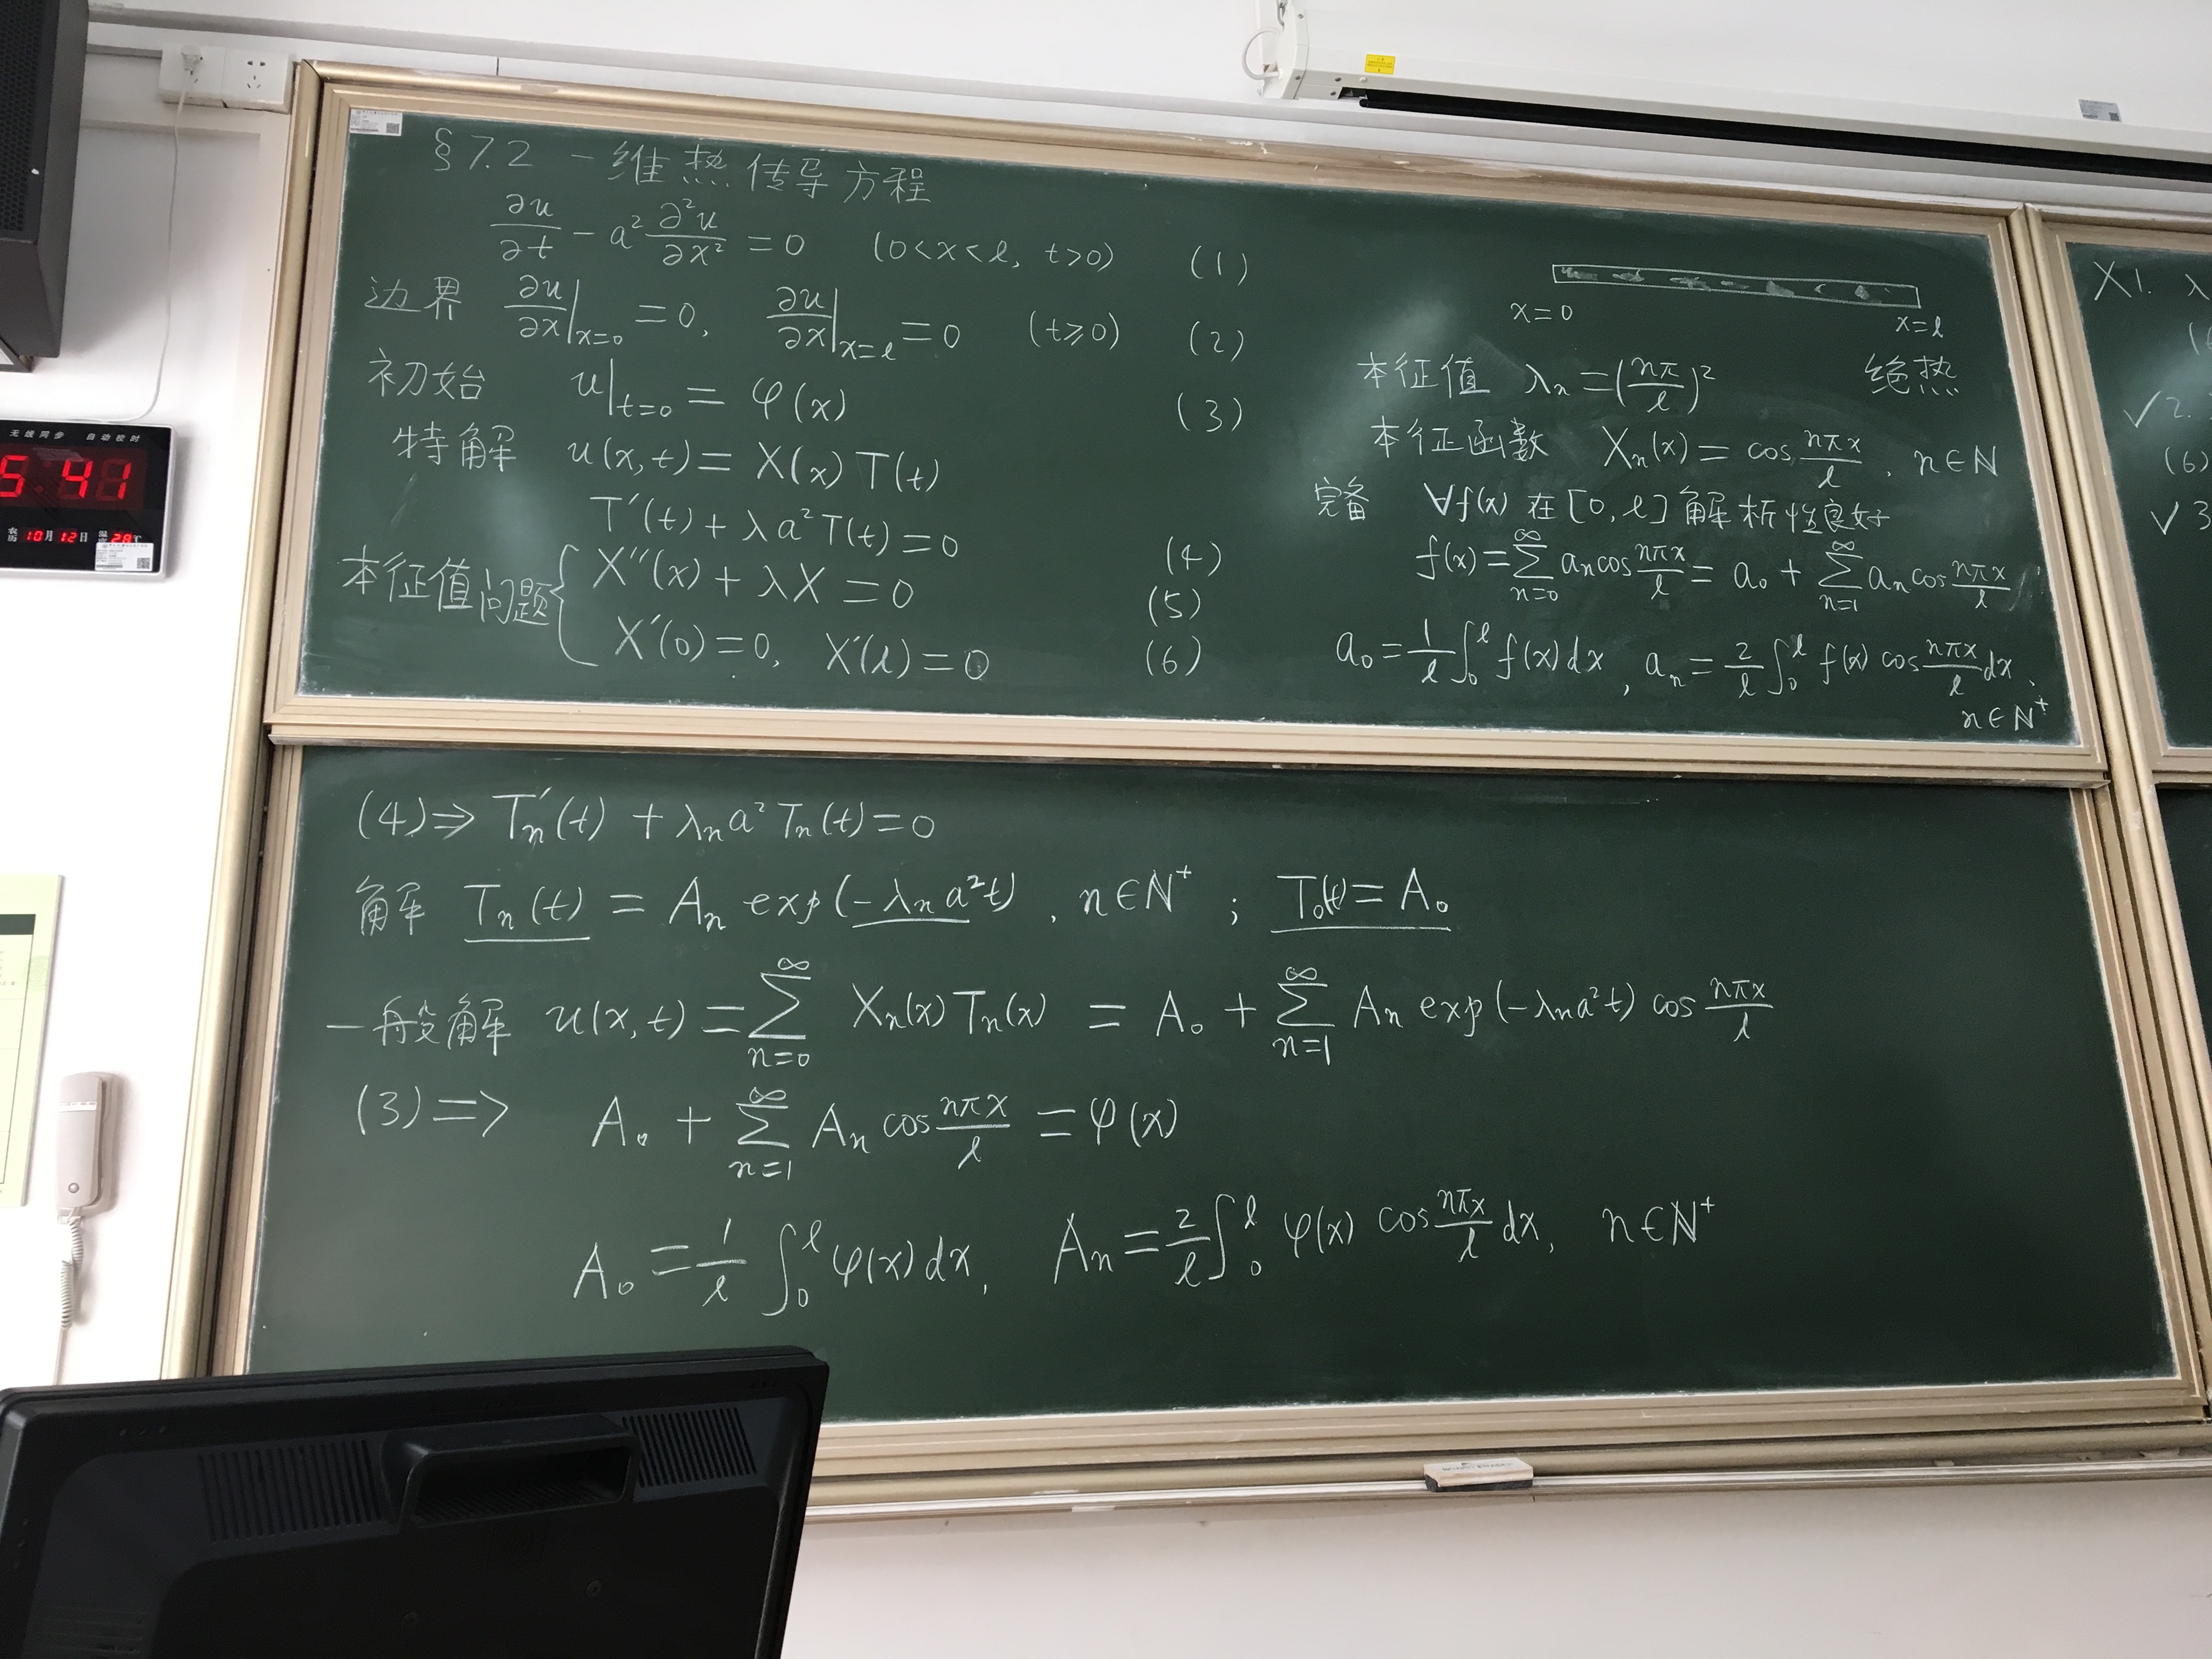 §7.2 一维热传导方程
∂u/∂t − a² ∂²u/∂x² = 0 (0<x<l, t>0) (1)
边界 ∂u/∂x|x=0 = 0, ∂u/∂x|x=l = 0 (t≥0) (2)
初始 u|t=0 = φ(x) (3)
特解 u(x,t) = X(x) T(t)
T′(t) + λa²T(t) = 0 (4)
本征值问题 { X″(x) + λX = 0 (5)
X′(0) = 0, X′(l) = 0 (6)
x=0 x=l
绝热
本征值 λn = (nπ/l)²
本征函数 Xn(x) = cos nπx/l , n∈N
完备 ∀f(x) 在[0,l]解析性良好
f(x) = ∑n=0^∞ an cos nπx/l = a0 + ∑n=1^∞ an cos nπx/l
a0 = 1/l ∫0^l f(x)dx, an = 2/l ∫0^l f(x) cos nπx/l dx,
n∈N⁺
(4)⇒ Tn′(t) + λn a² Tn(t) = 0
解 Tn(t) = An exp(−λn a²t), n∈N⁺ ; T0(t) = A0
一般解 u(x,t) = ∑n=0^∞ Xn(x)Tn(x) = A0 + ∑n=1^∞ An exp(−λn a²t) cos nπx/l
(3)⇒ A0 + ∑n=1^∞ An cos nπx/l = φ(x)
A0 = 1/l ∫0^l φ(x)dx, An = 2/l ∫0^l φ(x) cos nπx/l dx, n∈N⁺
X1. λ
√2.
(6)
√3
无线同步 自动校时
5:41
农历 10月12日 温度 28℃